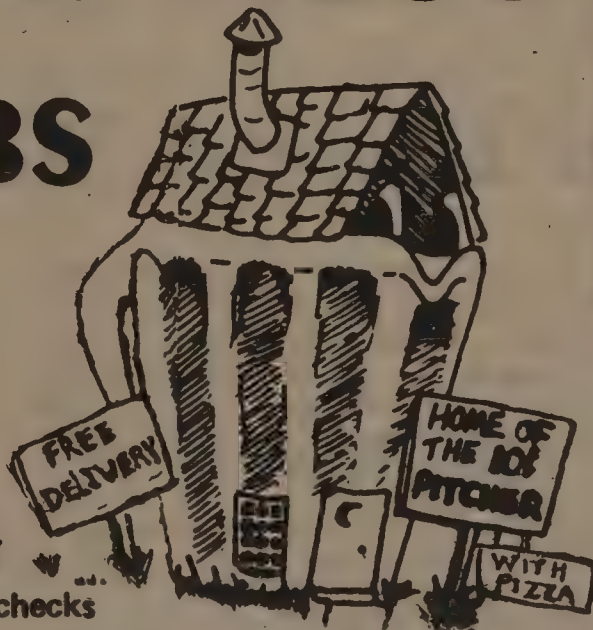 BS
FREE
DELIVERY
HOME OF
THE
PITCHER
WITH
PIZZA
checks